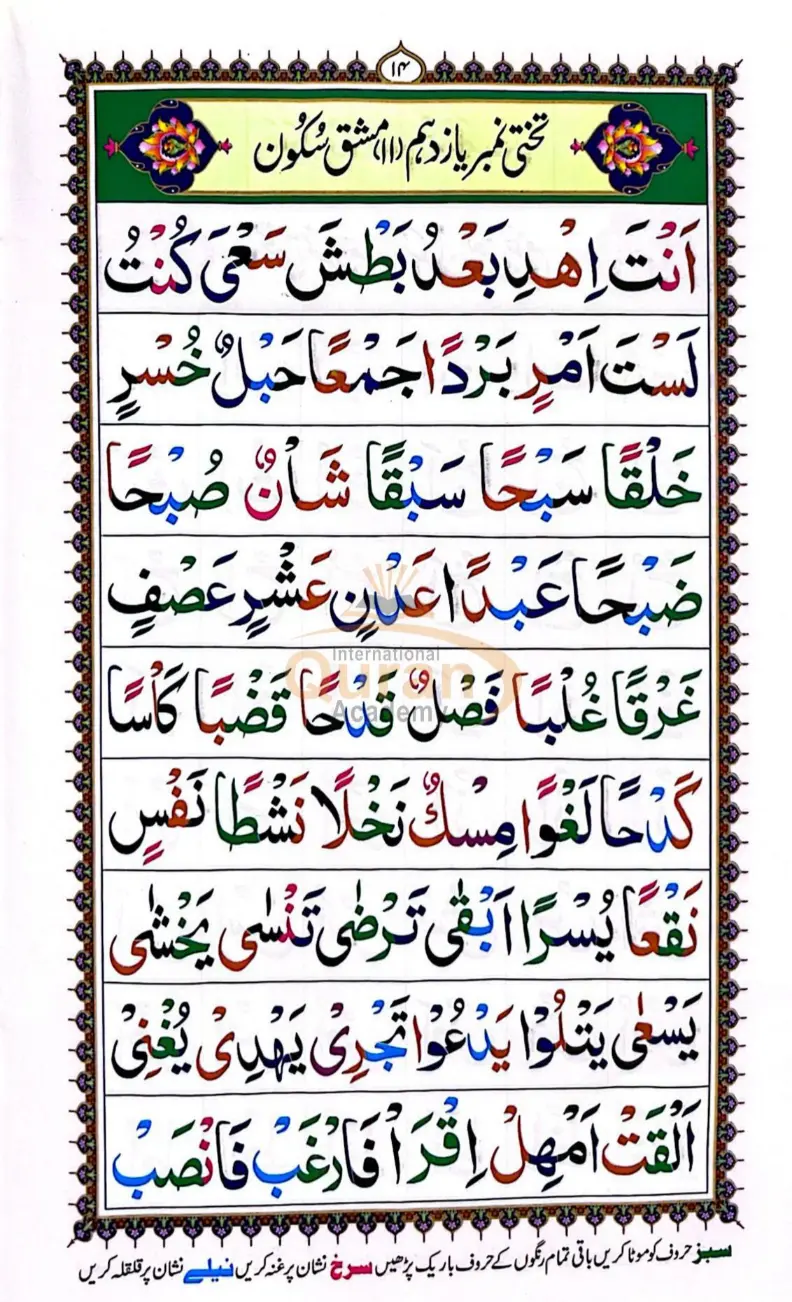 ۱۴
تختی نمبر یازدہم (۱۱) مشق سُکُون
اَنْتَ اِهْدِ بَعْدُ بَطْشَ سَعْیَ كُنْتُ
لَسْتَ اَمْرٍ بَرْدًا جَمْعًا حَبْلٌ خُسْرٍ
خَلْقًا سَبْحًا سَبْقًا شَاْنٌ صُبْحًا
ضَبْحًا عَبْدًا عَدْنٍ عَشْرٍ عَصْفٍ
International
Quran
Academy
غَرْقًا غُلْبًا فَصْلٌ قَدْحًا قَضْبًا كَاْسًا
كَدْحًا لَغْوًا مِسْكٌ نَخْلًا نَشْطًا نَفْسٍ
نَقْعًا يُسْرًا اَبْقٰى تَرْضٰى تَنْسٰى يَخْشٰى
يَسْعٰى يَتْلُوْا يَدْعُوْا تَجْرِىْ يَهْدِىْ يُغْنِىْ
اَلْقَتْ اَمْهِلْ اِقْرَاْ فَارْغَبْ فَانْصَبْ
سبز حروف کو موٹا کریں باقی تمام رنگوں کے حروف باریک پڑھیں سرخ نشان پر غنہ کریں نیلے نشان پر قلقلہ کریں